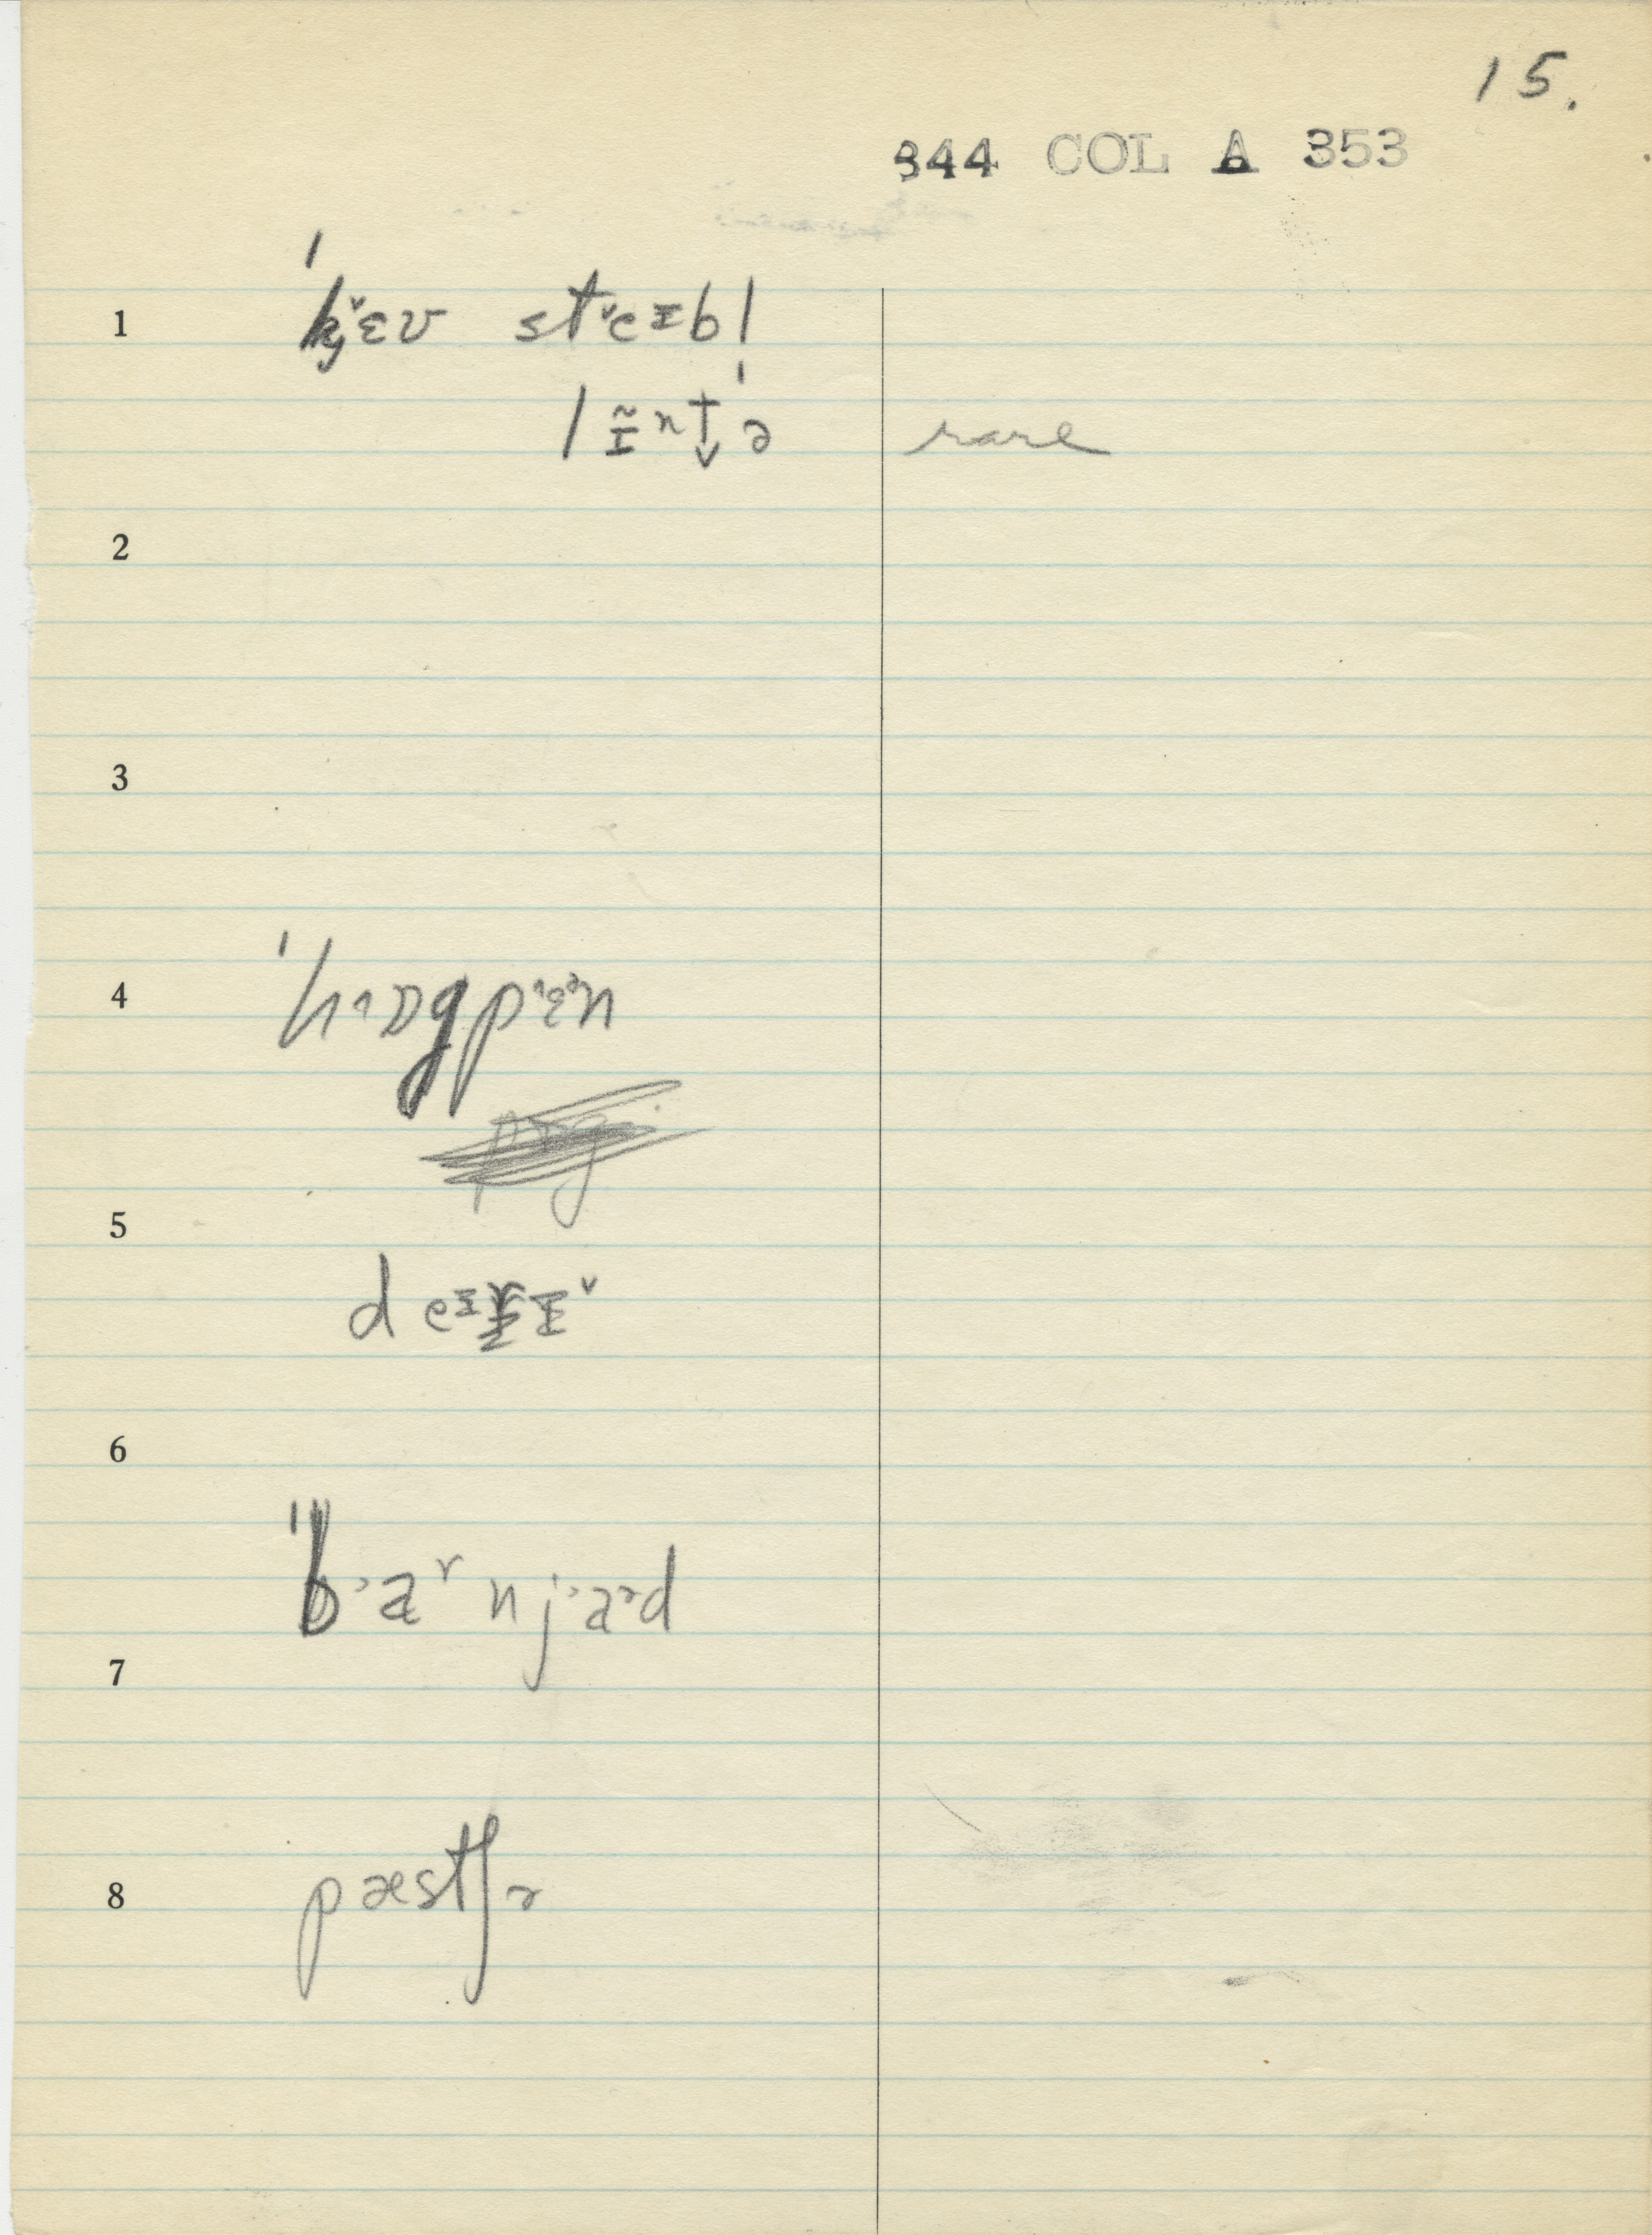 15.
344 COL A 353
1 ˈkj˅ɛʋ st˅eɪbl
lɪ̃ntˈə rare
2
3
4 ˈhɒgpɛən
5
deɪɪ˅
6
ˈbˑaʳnjˑaɚd
7
8 pæstʃɚ